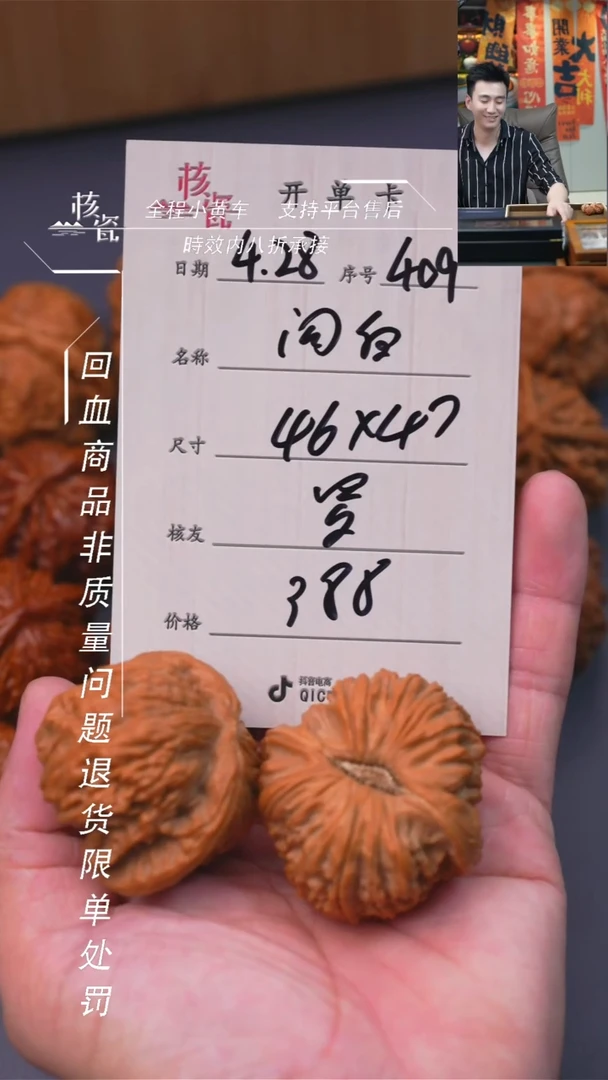 核瓷
开单卡
核瓷
全程小黄车 支持平台售后
時效内八折承接
日期 4.28 序号 409
名称 闷白
尺寸 46×47
核友
价格 398
抖音电商
QIC
回血商品非质量问题退货限单处罚
開業大吉
大利
事事如意